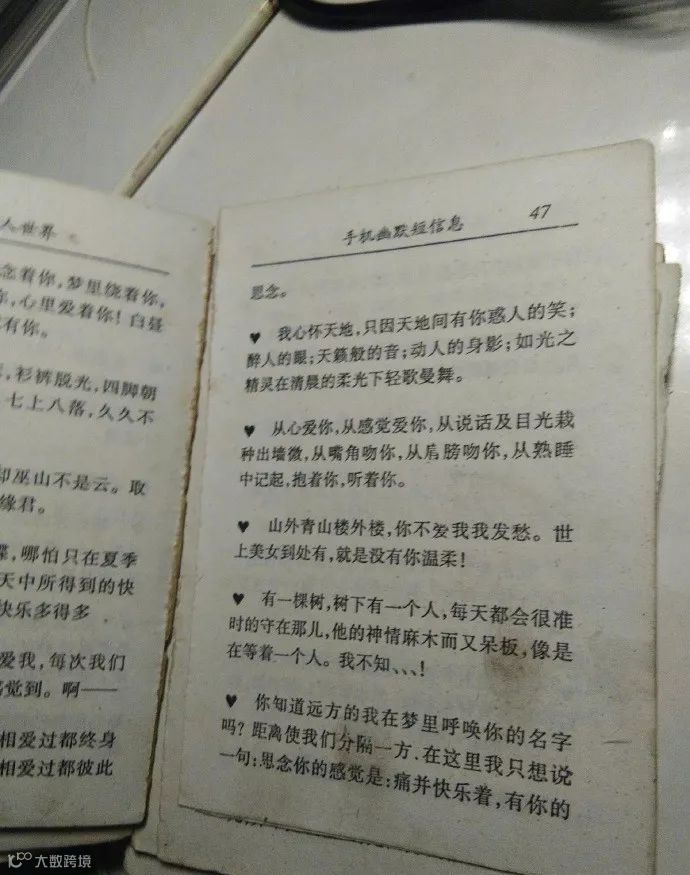 人世界
念着你，梦里绕着你，
你，心里爱着你！白昼
有你。
，衫裤脱光，四脚朝
七上八落，久久不
却巫山不是云。取
缘君。
蝶，哪怕只在夏季
天中所得到的快
快乐多得多
爱我，每次我们
感觉到。啊——
相爱过都终身
相爱过都彼此
手机幽默短信息 47
思念。
♥ 我心怀天地，只因天地间有你惑人的笑；
醉人的眼；天籁般的音；动人的身影；如光之
精灵在清晨的柔光下轻歌曼舞。
♥ 从心爱你，从感觉爱你，从说话及目光栽
种出墙微，从嘴角吻你，从肩膀吻你，从熟睡
中记起，抱着你，听着你。
♥ 山外青山楼外楼，你不爱我我发愁。世
上美女到处有，就是没有你温柔！
♥ 有一棵树，树下有一个人，每天都会很准
时的守在那儿，他的神情麻木而又呆板，像是
在等着一个人。我不知、、、！
♥ 你知道远方的我在梦里呼唤你的名字
吗？距离使我们分隔一方．在这里我只想说
一句：思念你的感觉是：痛并快乐着，有你的
大数跨境